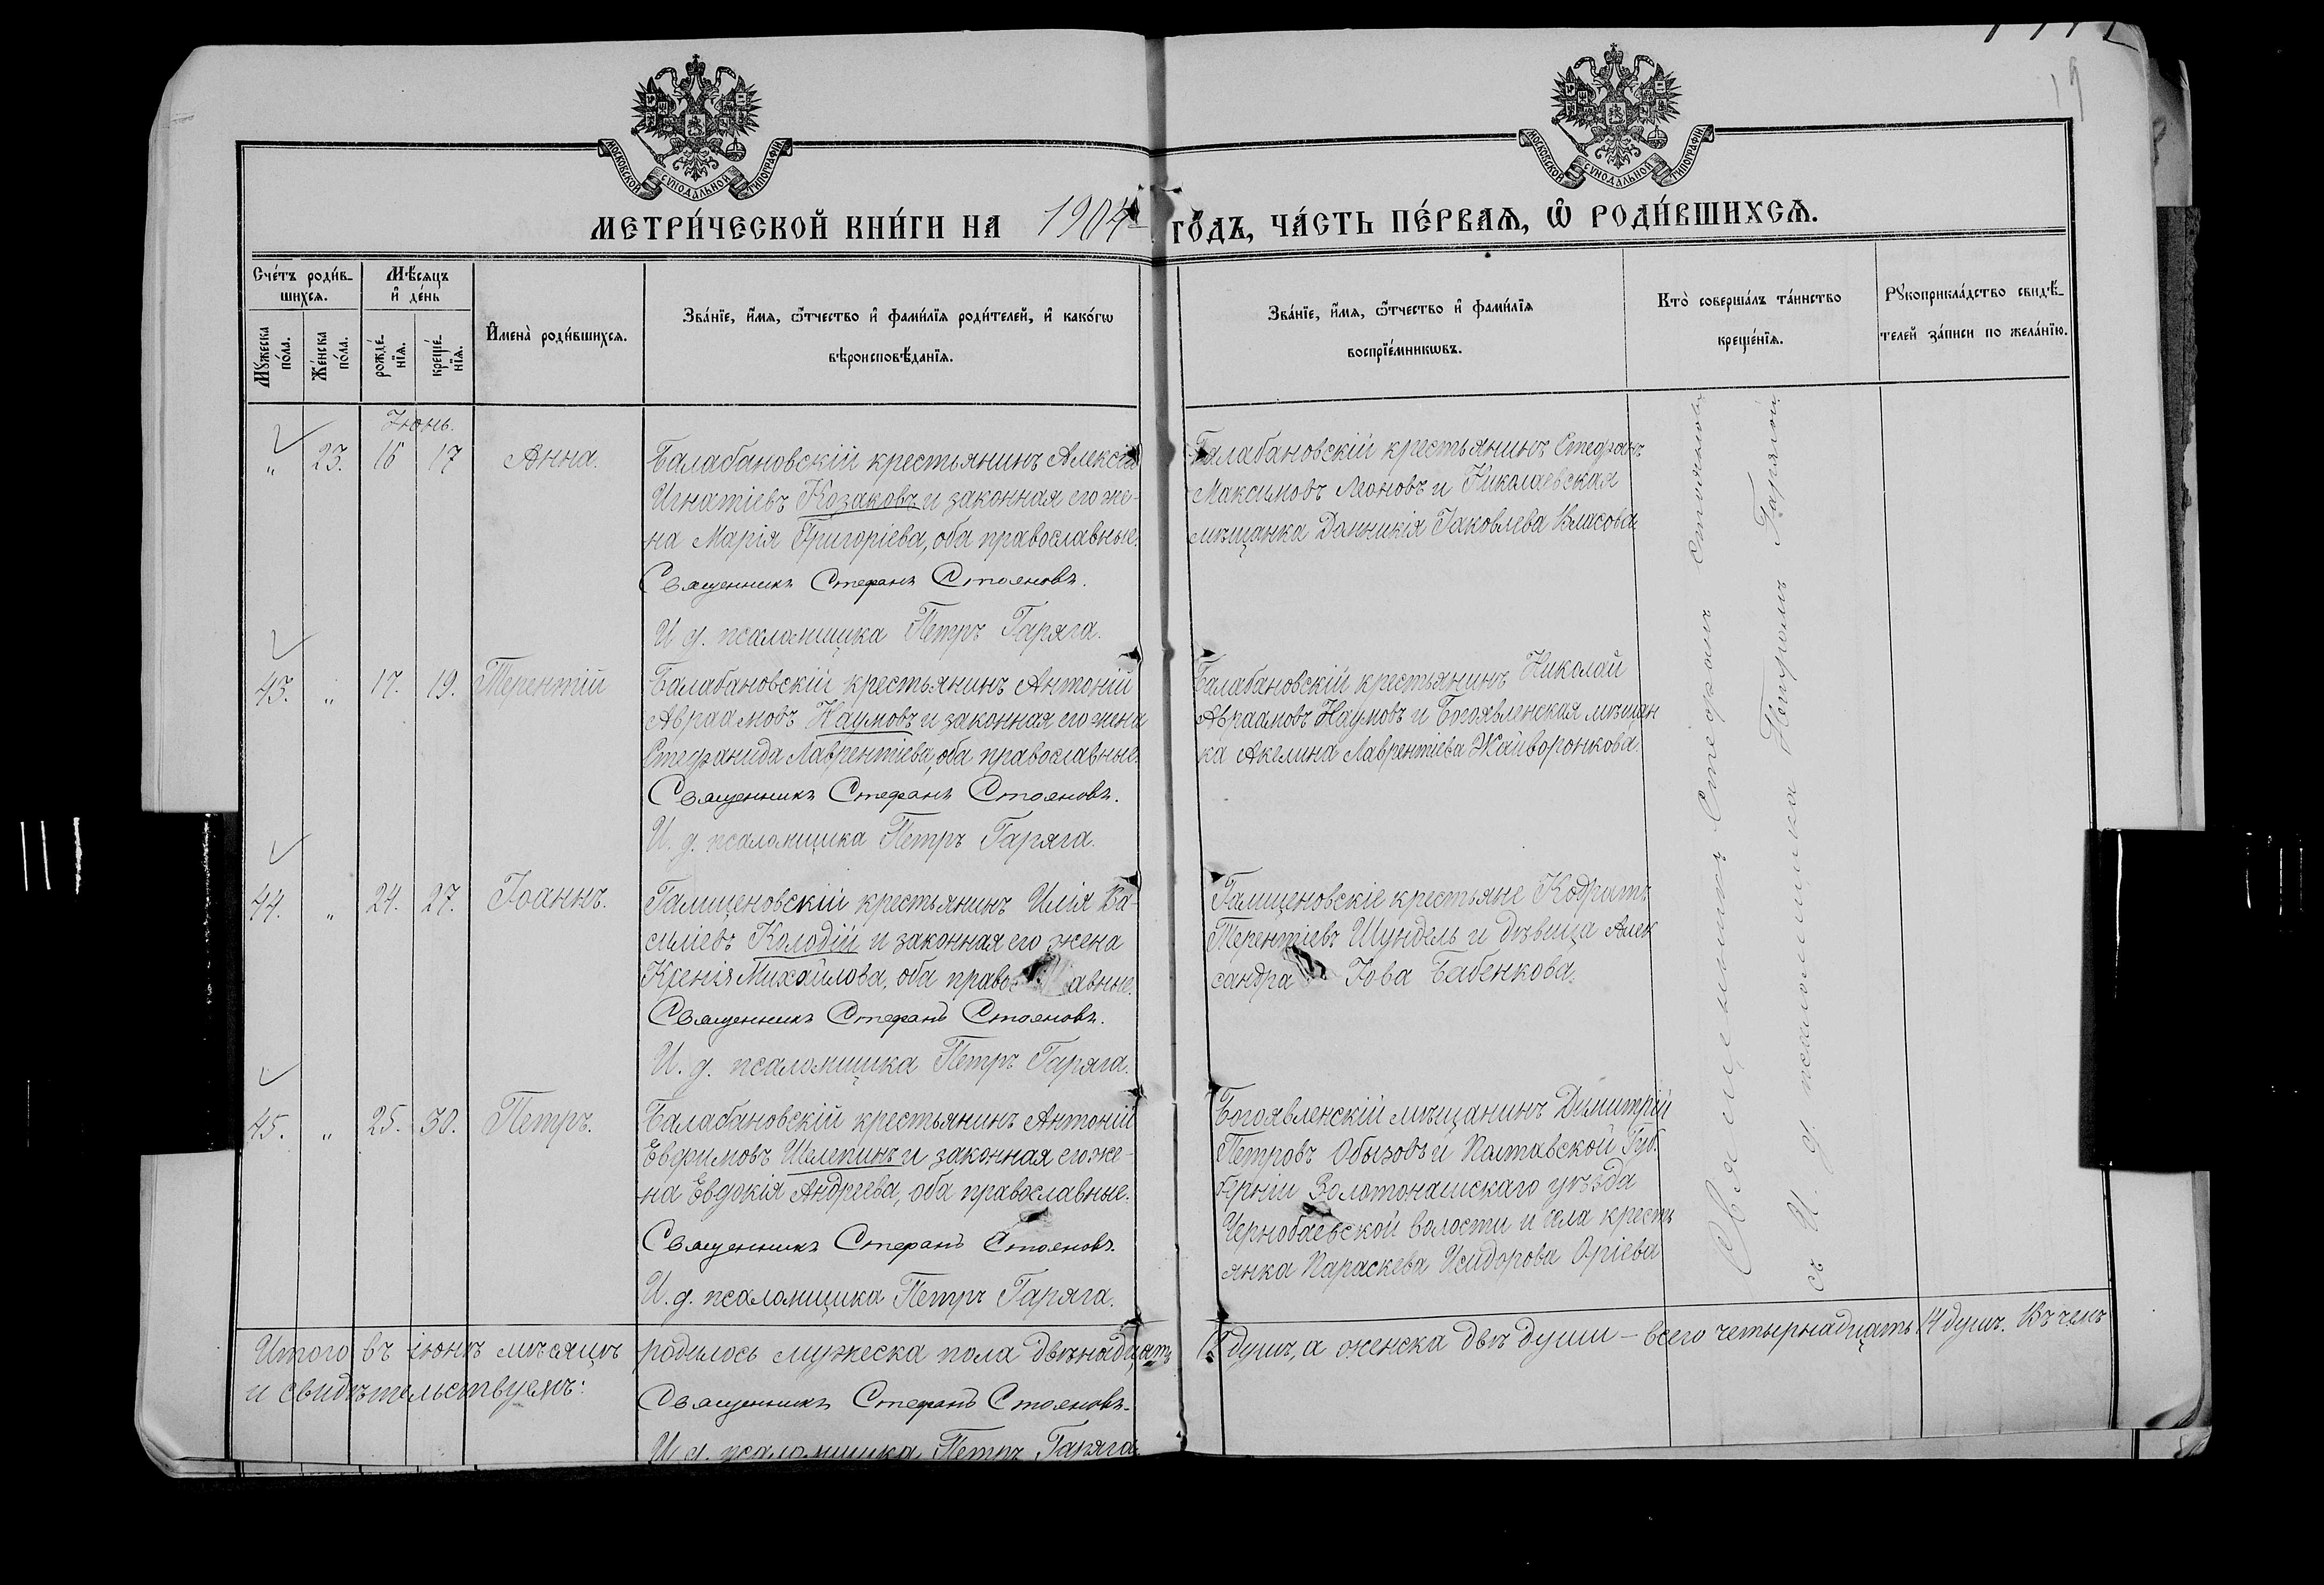 МОСКОВСКОЙ СѴНОДАЛЬНОЙ ТИПОГРАФІИ
МОСКОВСКОЙ СѴНОДАЛЬНОЙ ТИПОГРАФІИ
19
МЕТРИ́ЧЕСКОЙ КНИ́ГИ НА 1904 ГО́ДЪ, ЧА́СТЬ ПЕ́РВАѦ, Ѽ РОДИ́ВШИХСѦ.
Сче́тъ роди́в-
шихсѧ.
Мѣ́сѧцъ
и҆ де́нь
Мꙋ́жеска
по́ла.
Же́нска
по́ла.
рожде́-
нїѧ.
креще́-
нїѧ.
И҆мена̀ роди́вшихсѧ.
Зва́нїе, и҆́мѧ, ѻ҆́тчество и҆ фами́лїѧ роди́телей, и҆ како́гѡ
вѣроисповѣ́данїѧ.
Зва́нїе, и҆́мѧ, ѻ҆́тчество и҆ фами́лїѧ
воспрїе́мникѡвъ.
Кто̀ соверша́лъ та́инство
креще́нїѧ.
Рꙋкоприкла́дство свидѣ́-
телей за́писи по жела́нїю.
Іюнь.
„ 23. 16 17 Анна.
Балабановскій крестьянинъ Алексій
Игнатіевъ Козаковъ и законная его же-
на Марія Григоріева, оба православные.
Священникъ Стефанъ Стояновъ.
И д. псаломщика Петръ Гаряга.
Балабановскій крестьянинъ Стефанъ
Максимовъ Леоновъ и Николаевская
мѣщанка Домникія Іаковлева Власова.
43. „ 17. 19. Терентій
Балабановскій крестьянинъ Антоній
Авраамовъ Наумовъ и законная его жена
Стефанида Лаврентіева, оба православные.
Священникъ Стефанъ Стояновъ.
И. д. псаломщика Петръ Гаряга.
Балабановскій крестьянинъ Николай
Авраамовъ Наумовъ и Богоявленская мѣщан
ка Акелина Лаврентіева Жайворонкова.
44. „ 24. 27. Іоаннъ.
Галиценовскій крестьянинъ Илія Ва-
силіевъ Колодій и законная его жена
Ксенія Михайлова, оба правос авные.
Священникъ Стефанъ Стояновъ.
И. д. псаломщика Петръ Гаряга.
Галиценовскіе крестьяне Кодратъ
Терентіевъ Шундель и дѣвица Алек
сандра Іова Бабенкова.
45. „ 25. 30. Петръ.
Балабановскій крестьянинъ Антоній
Евфимовъ Шелепинъ и законная его же-
на Евдокія Андреева, оба православные.
Священникъ Стефанъ Стояновъ.
И. д. псаломщика Петръ Гаряга.
Богоявленскій мѣщанинъ Димитрій
Петровъ Обызовъ и Полтавской Губ.
берніи Золотоношскаго уѣзда
Чернобаевской волости и села кресть
янка Параскева Исидорова Оріева
Священникъ Стефанъ Стояновъ
съ И. д. псаломщика Петромъ Гарягой
Итого въ іюнѣ мѣсяцѣ родилось мужеска пола двѣнадцать 12 душъ, а женска двѣ души – всего четырнадцать 14 душъ. Въ чемъ
и свидѣтельствуемъ:
Священникъ Стефанъ Стояновъ.
И д. псаломщика Петръ Гаряга.